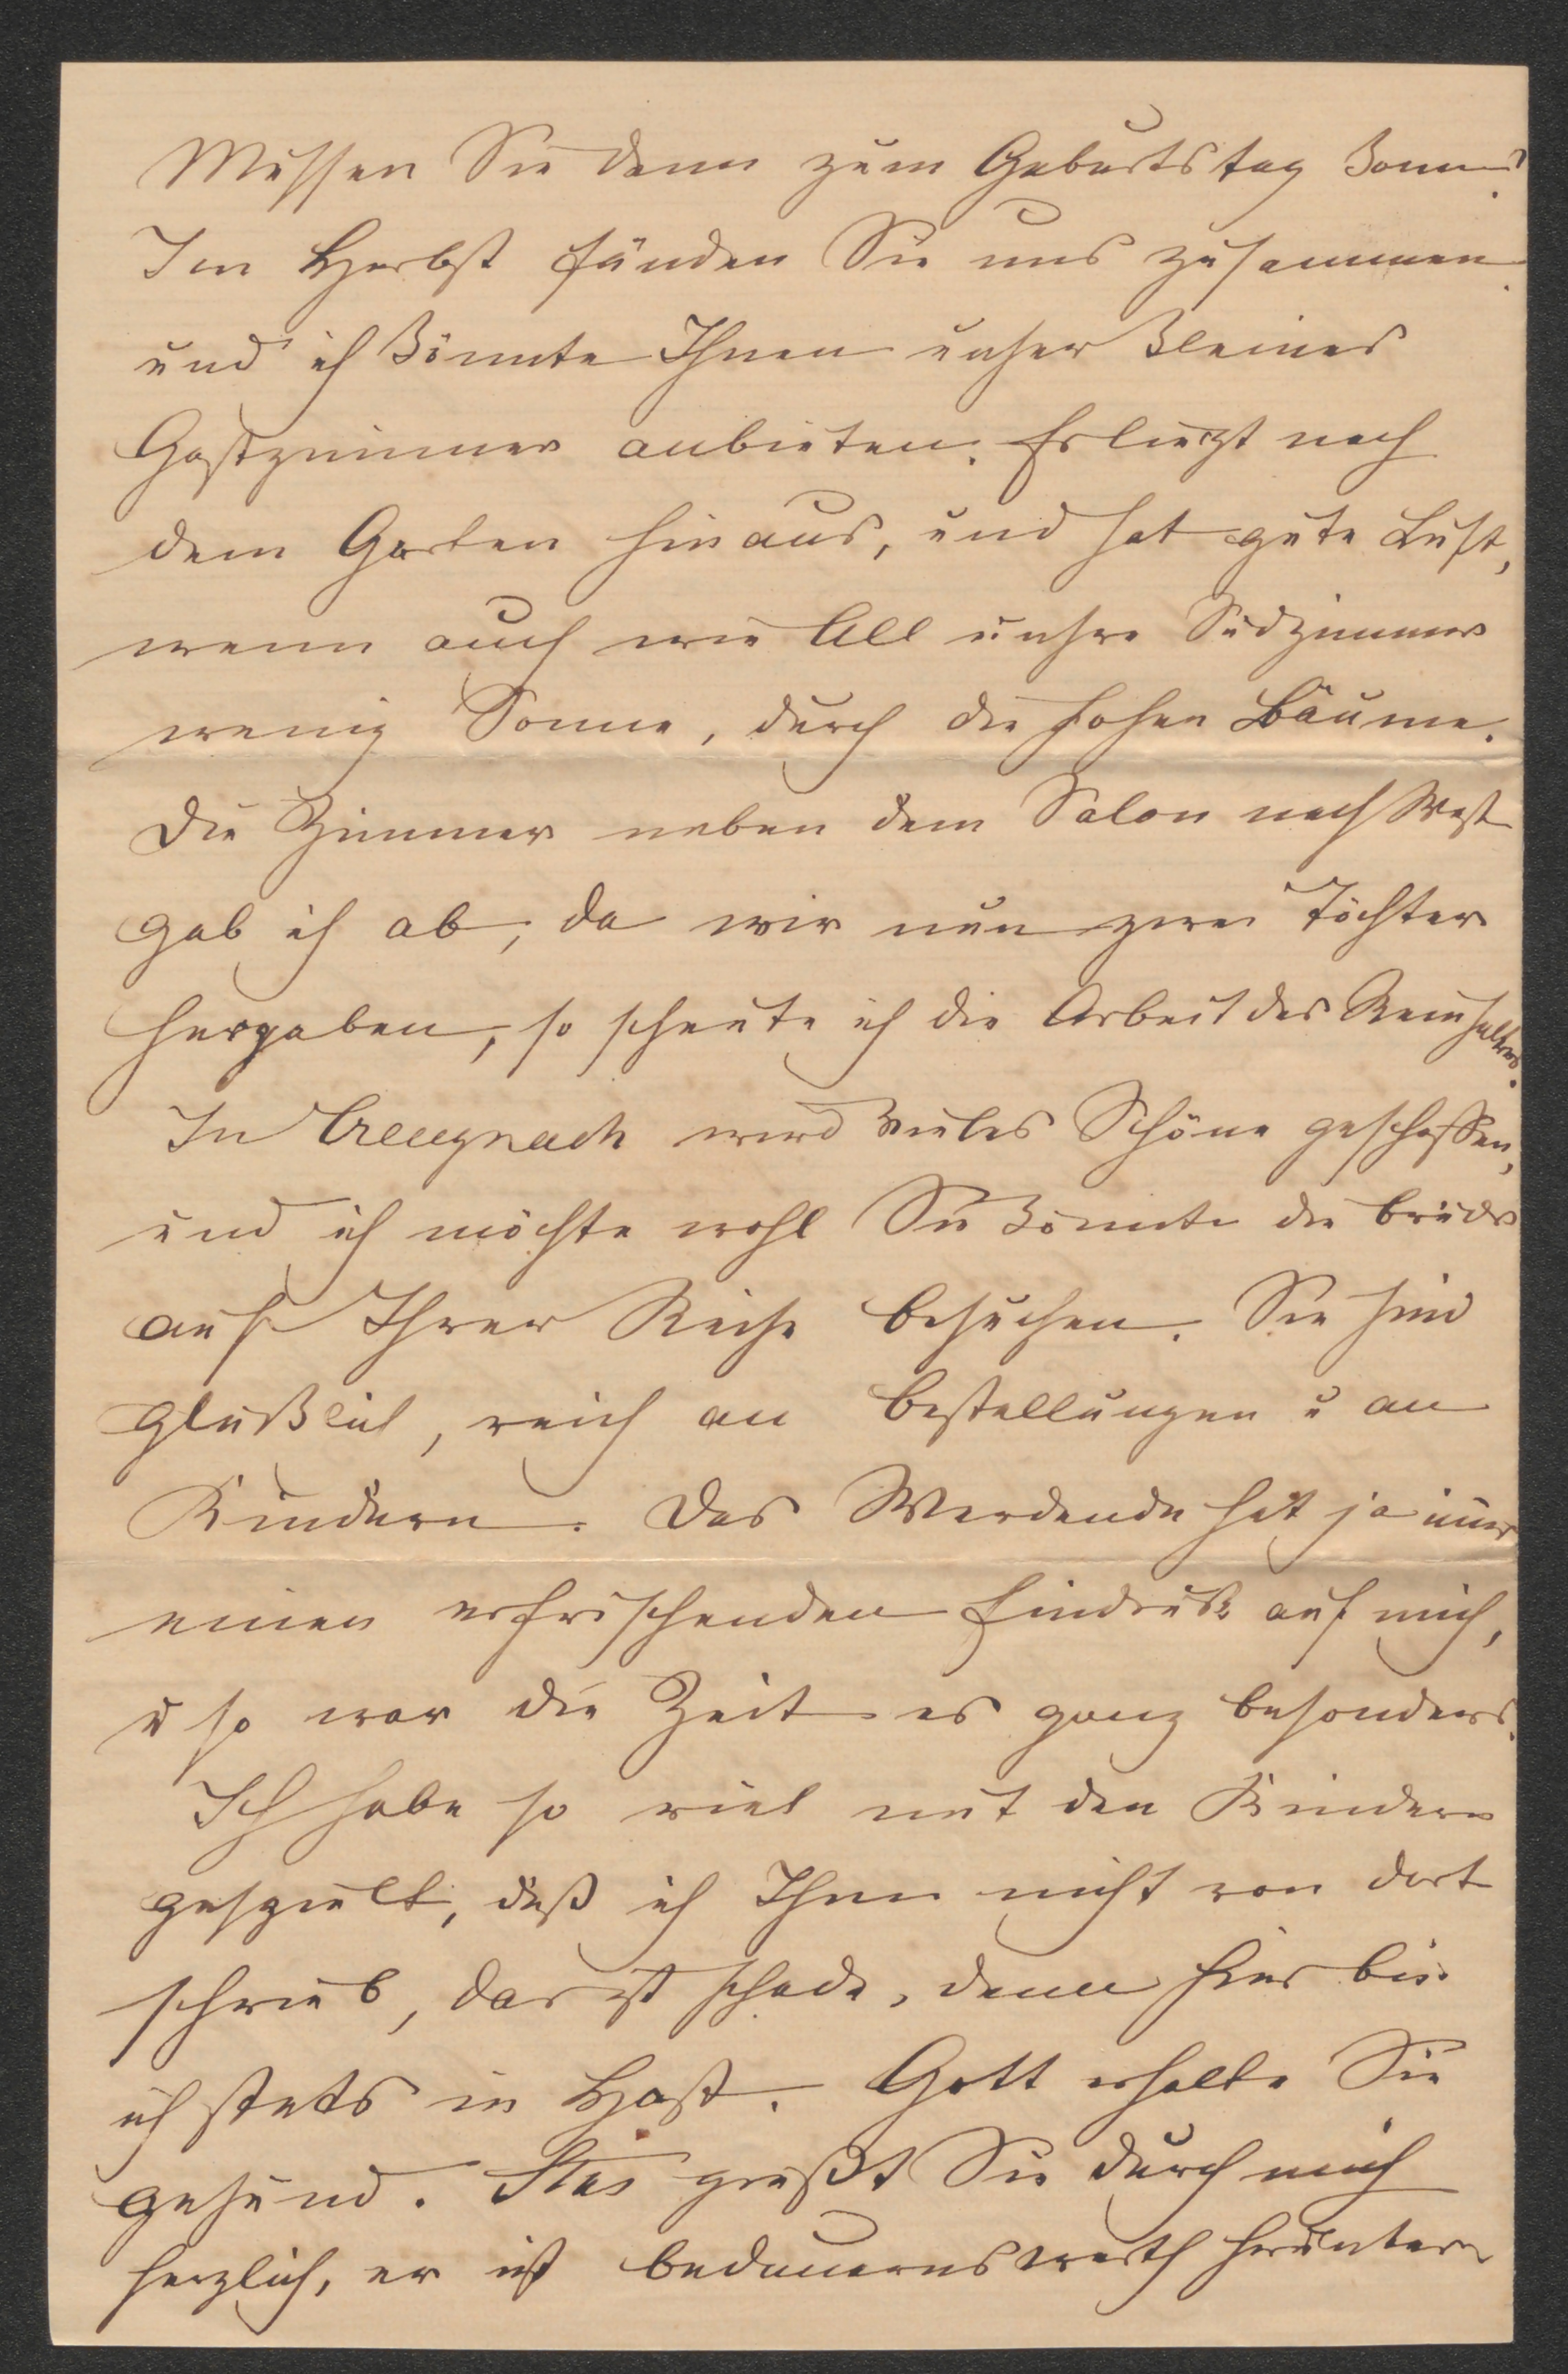 Müssen Sie denn zum Geburtstag komm?
Im Herbst fänden Sie uns zusammen.
und ich könnte Ihnen unser kleines
Gastzimmer anbieten. Es liegt nach
dem Garten hinaus, und hat gute Luft,
wenn auch wie All unsre Südzimmer
wenig Sonne, durch die hohen Bäume.
Die Zimmer neben dem Salon nach West
gab ich ab, da wir nun zwei Töchter
hergaben, so scheute ich die Arbeit des Reinhaltens.
In Creuznach wird vieles Schöne geschaffen,
und ich möchte wohl Sie könnte die Brüder
auf Ihrer Reise besuchen. Sie sind
glücklich, reich an Bestellungen u an
Kindern. Das Werdende hat ja immer
einen erfrischenden Eindruck auf mich,
u so war die Zeit es ganz besonders.
Ich habe so viel mit den Kindern
gespielt, daß ich Ihnen nicht von dort
schrieb, das ist schade, denn hier bin
ich stets in Hast. Gott erhalte Sie
gesund. grüßt Sie durch mich
herzlich, er ist bedauernswerth herunter